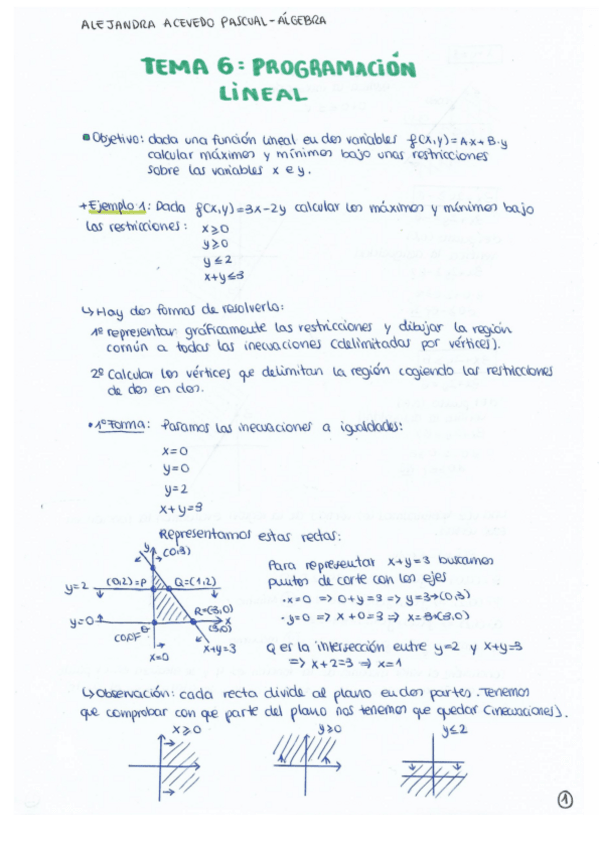 ALEJANDRA ACEVEDO PASCUAL - ÁLGEBRA
TEMA 6: PROGRAMACIÓN
LINEAL
Objetivo: dada una función lineal en dos variables f(x,y)=A·x+B·y
calcular máximos y mínimos bajo unas restricciones
sobre las variables x e y.
+Ejemplo 1: Dada f(x,y)=3x-2y calcular los máximos y mínimos bajo
las restricciones: x≥0
y≥0
y≤2
x+y≤3
↳Hay dos formas de resolverlo:
1º representar gráficamente las restricciones y dibujar la región
común a todas las inecuaciones (delimitadas por vértices).
2º Calcular los vértices que delimitan la región cogiendo las restricciones
de dos en dos.
•1º Forma: Pasamos las inecuaciones a igualdades:
x=0
y=0
y=2
x+y=3
Representamos estas rectas:
y (0,3)
y=2 (0,2)=P Q=(1,2)
y=0 R=(3,0) x
(0,0) (3,0)
x=0 x+y=3
Para representar x+y=3 buscamos
puntos de corte con los ejes
·x=0 => 0+y=3 => y=3→(0,3)
·y=0 => x+0=3 => x=3→(3,0)
Q es la intersección entre y=2 y x+y=3
=> x+2=3 => x=1
↳Observación: cada recta divide al plano en dos partes. Tenemos
que comprobar con que parte del plano nos tenemos que quedar (inecuaciones).
x≥0 y≥0 y≤2
1